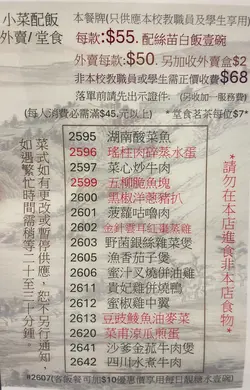 小菜配飯
外賣/堂食
本餐牌(只供應本校教職員及學生享用)
每款:$55. 配絲苗白飯壹碗
外賣每款:$50. 另加收外賣盒$2
非本校教職員或學生需正價收費$68
落單前請先出示證件. (另收加一服務費)
(每人消費必需滿$45.元以上) * 堂食茗茶每位$7*
2595 湖南酸菜魚
2596 瑤柱肉碎蒸水蛋
2597 菜心炒牛肉
2599 五柳脆魚塊
2600 黑椒洋蔥豬扒
2601 菠蘿咕嚕肉
2602 金針雲耳紅棗蒸雞
2603 野菌銀絲雜菜煲
2605 魚香茄子煲
2606 蜜汁叉燒併油雞
2611 貴妃雞併燒鴨
2612 蜜椒雞中翼
2613 豆豉鯪魚油麥菜
2620 菜甫涼瓜煎蛋
2641 沙爹金菰牛肉煲
2642 四川水煮牛肉
菜式如有更改或暫停供應,恕不另行通知,
如遇繁忙時間需稍等二十至三十分鐘。
*請勿在本店進食非本店食物*
#2607(客飯餐可加$10優惠價享用每日靚糖水壹碗)